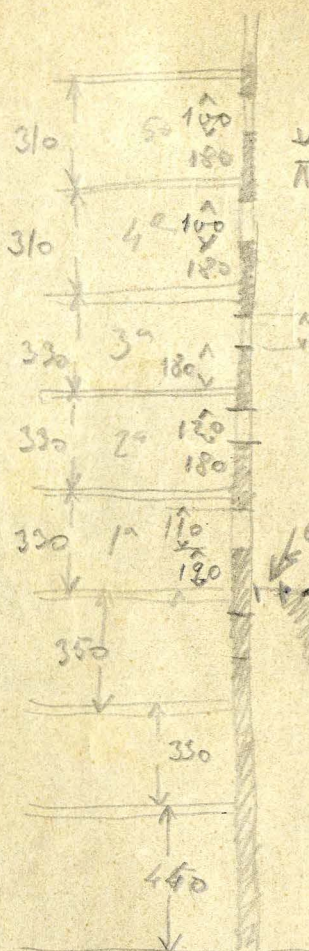 310 5a 100
180
310 4a 100
180
330 3a 180
330 2a 120
180
330 1a 110
120
350
330
440